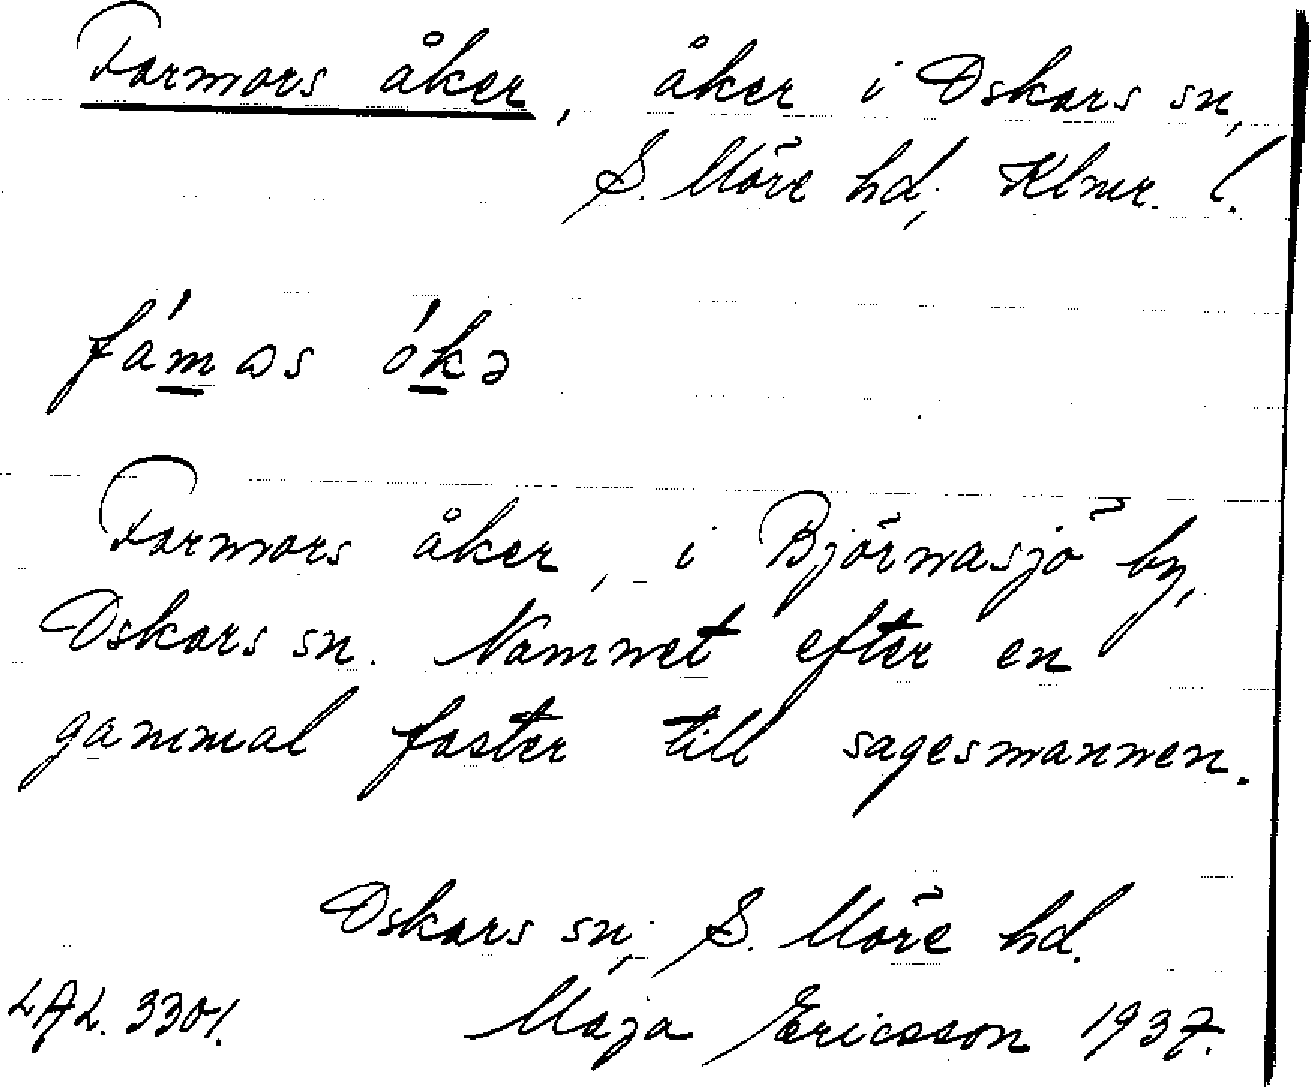 Farmors åker, åker i Oskars sn,
S. Möre hd, Klmr. l.
fámɷs ókə
Farmors åker, i Björnasjö by,
Oskars sn. Namnet efter en
gammal faster till sagesmannen.
Oskars sn, S. Möre hd.
LAL. 3301. Maja Ericsson 1937.